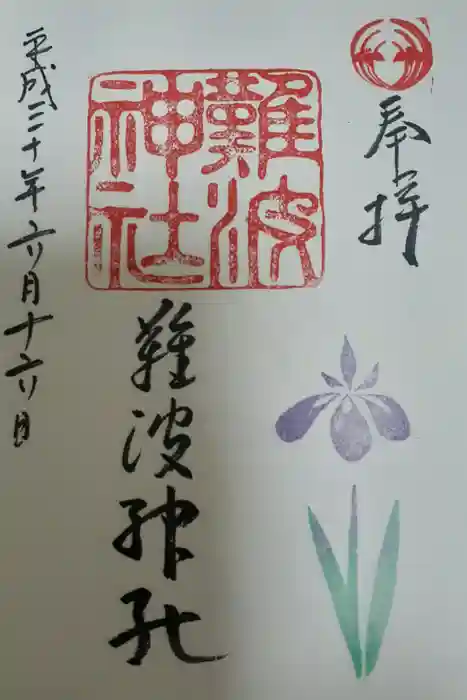 奉拝
難波神社
難波神社
平成三十年六月十六日